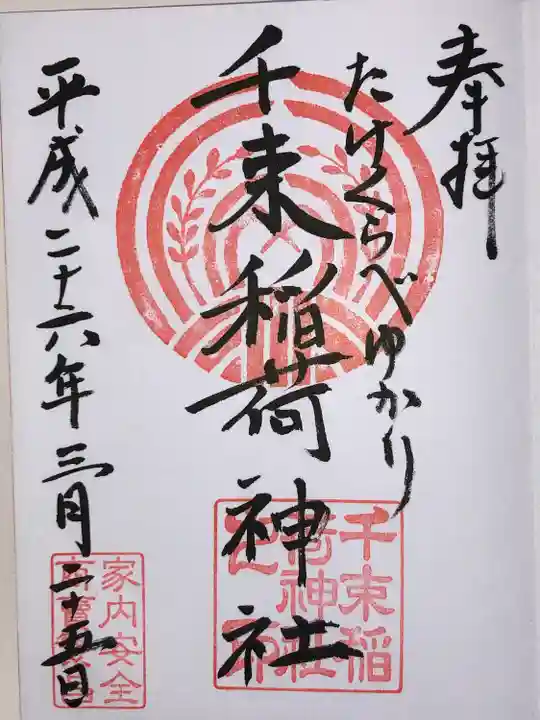 奉拝
たけくらべゆかり
千束稲荷神社
千束稲
荷神社
平成二十六年三月二十五日
家内安全